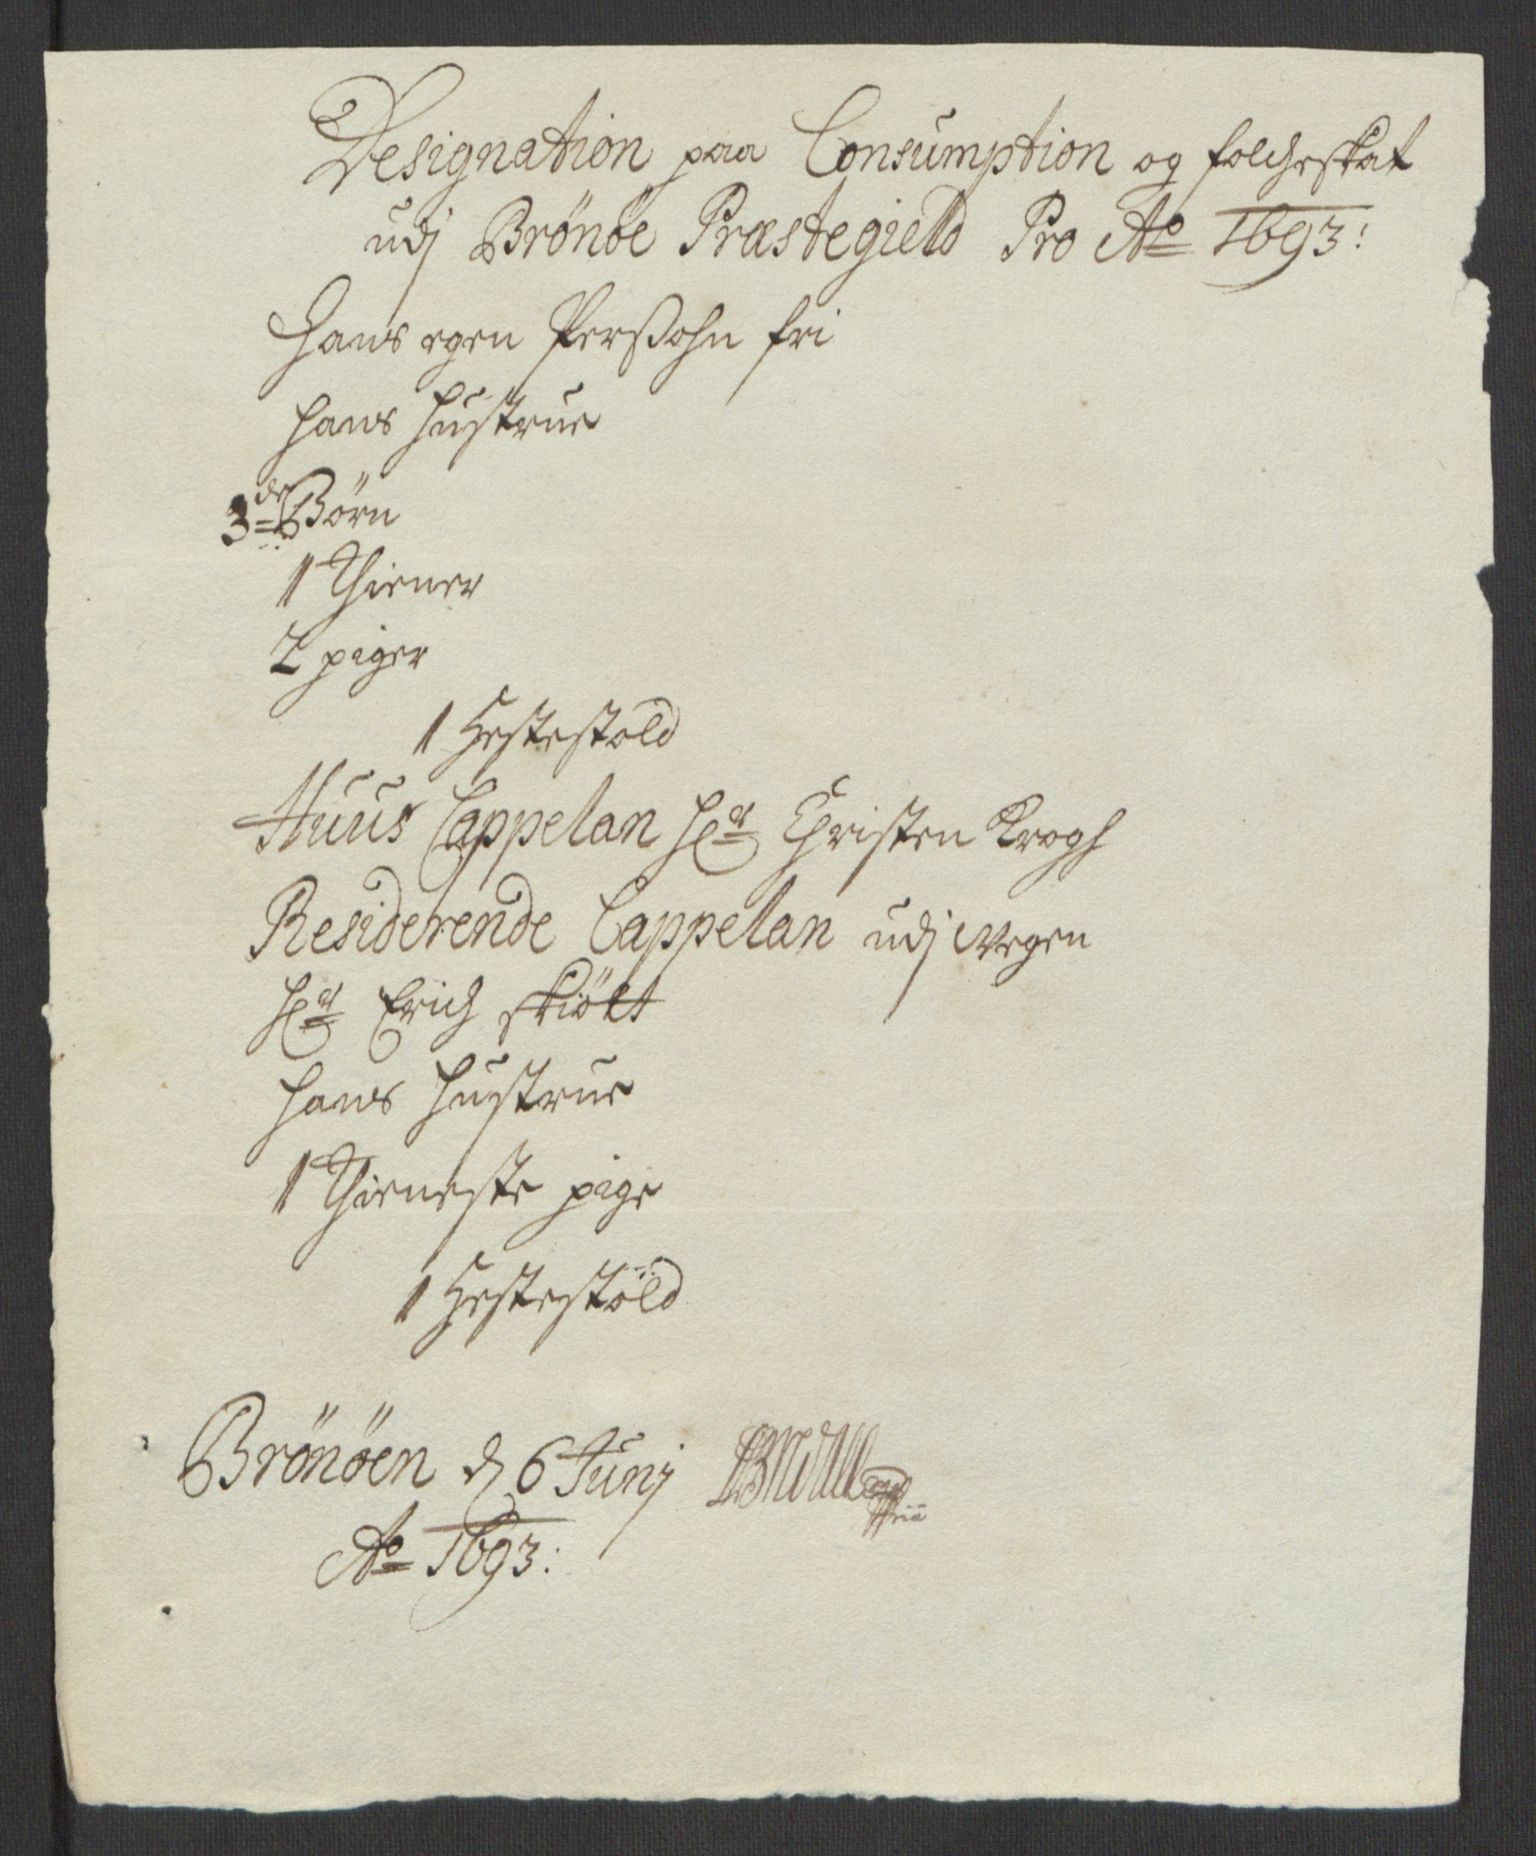 Designation paa Consumption og folcheskat
udj Brönöe Præstegield Pro Ao 1693:
Hans egen Perssohn fri
hans hustrue
3de Börn
1 Thiener
2 piger
1 Hestestold
Huus Cappelan Hr Christen Krogh
Residerende Cappelan udj Wegen
Hr Erich skiöLt
hans hustrue
1 Thieneste pige
1 Hestestöld
Brönöen d 6 Junj
Ao 1693: